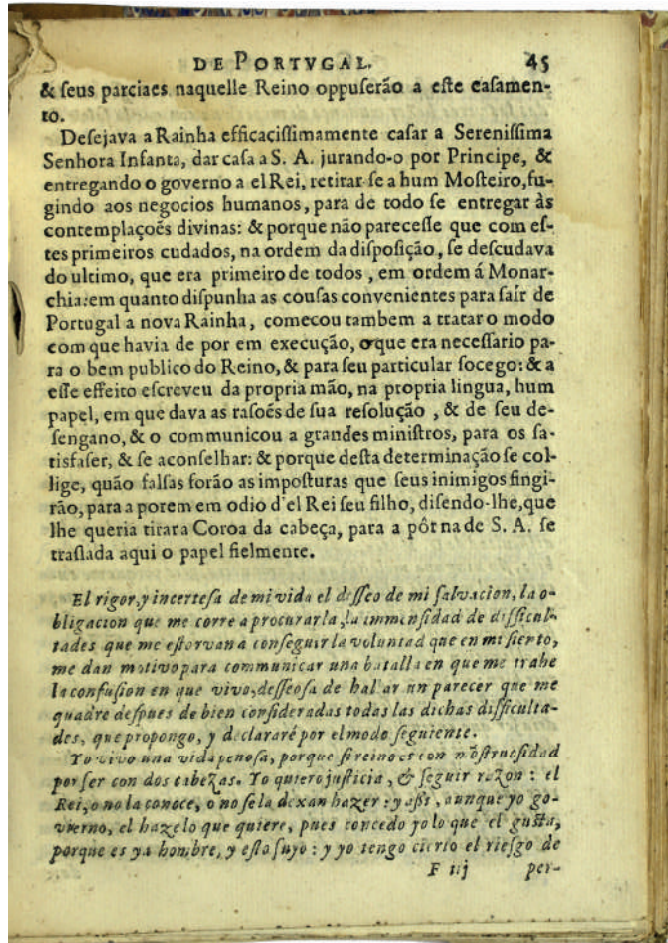 DE PORTVGAL. 45
& ſeus parciaes naquelle Reino oppuſerão a eſte caſamen-
to.
Deſejava a Rainha efficaciſſimamente caſar a Sereniſſima
Senhora Infanta, dar caſa a S. A. jurando-o por Principe, &
entregando o governo a el Rei, retirar ſe a hum Moſteiro, fu-
gindo aos negocios humanos, para de todo ſe entregar às
contemplaçoẽs divinas: & porque não pareceſſe que com eſ-
tes primeiros cudados, na ordem da diſpoſição, ſe deſcudava
do ultimo, que era primeiro de todos, em ordem á Monar-
chia: em quanto diſpunha as couſas convenientes para ſaír de
Portugal a nova Rainha, comecou tambem a tratar o modo
com que havia de por em execução, o que era neceſſario pa-
ra o bem publico do Reino, & para ſeu particular ſocego: & a
eſſe effeito eſcreveu da propria mão, na propria lingua, hum
papel, em que dava as raſoẽs de ſua reſolução, & de ſeu de-
ſengano, & o communicou a grandes miniſtros, para os ſa-
tisfaſer, & ſe aconſelhar: & porque deſta determinação ſe col-
lige, quão falſas forão as impoſturas que ſeus inimigos fingi-
rão, para a porem em odio d'el Rei ſeu filho, diſendo-lhe, que
lhe queria tirar a Coroa da cabeça, para a pôr na de S. A. ſe
traſlada aqui o papel fielmente.
El rigor, y incerteſa de mi vida el deſſeo de mi ſalvacion, la o-
bligacion que me corre a procurarla, la immenſidad de difficul-
tades que me eſtorvan a conſeguir la voluntad que en mi ſiento,
me dan motivo para communicar una batalla en que me trahe
la confuſion en que vivo, deſſeoſa de hallar un parecer que me
quadre deſpues de bien conſideradas todas las dichas difficulta-
des, que propongo, y declararé por el modo ſeguiente.
Yo vivo una vida penoſa, porque ſi reino es con mõſtrueſidad
por ſer con dos cabezas. Yo quiero juſticia, & ſeguir razon: el
Rei, o no la conoce, o no ſe la dexan hazer: y aſsi, aunque yo go-
vierno, el haze lo que quiere, pues concedo yo lo que el guſta,
porque es ya hombre, y eſto ſuyo: y yo tengo cierto el rieſgo de
F iij per-